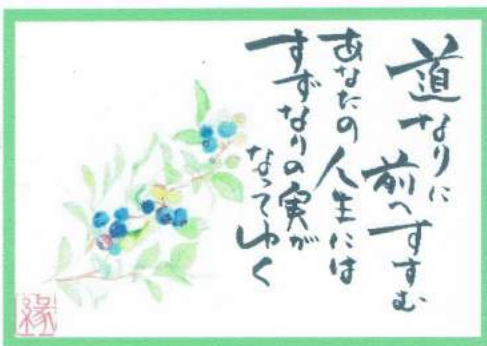 道なりに
前へすすむ
あなたの人生には
すずなりの実が
なってゆく
縁